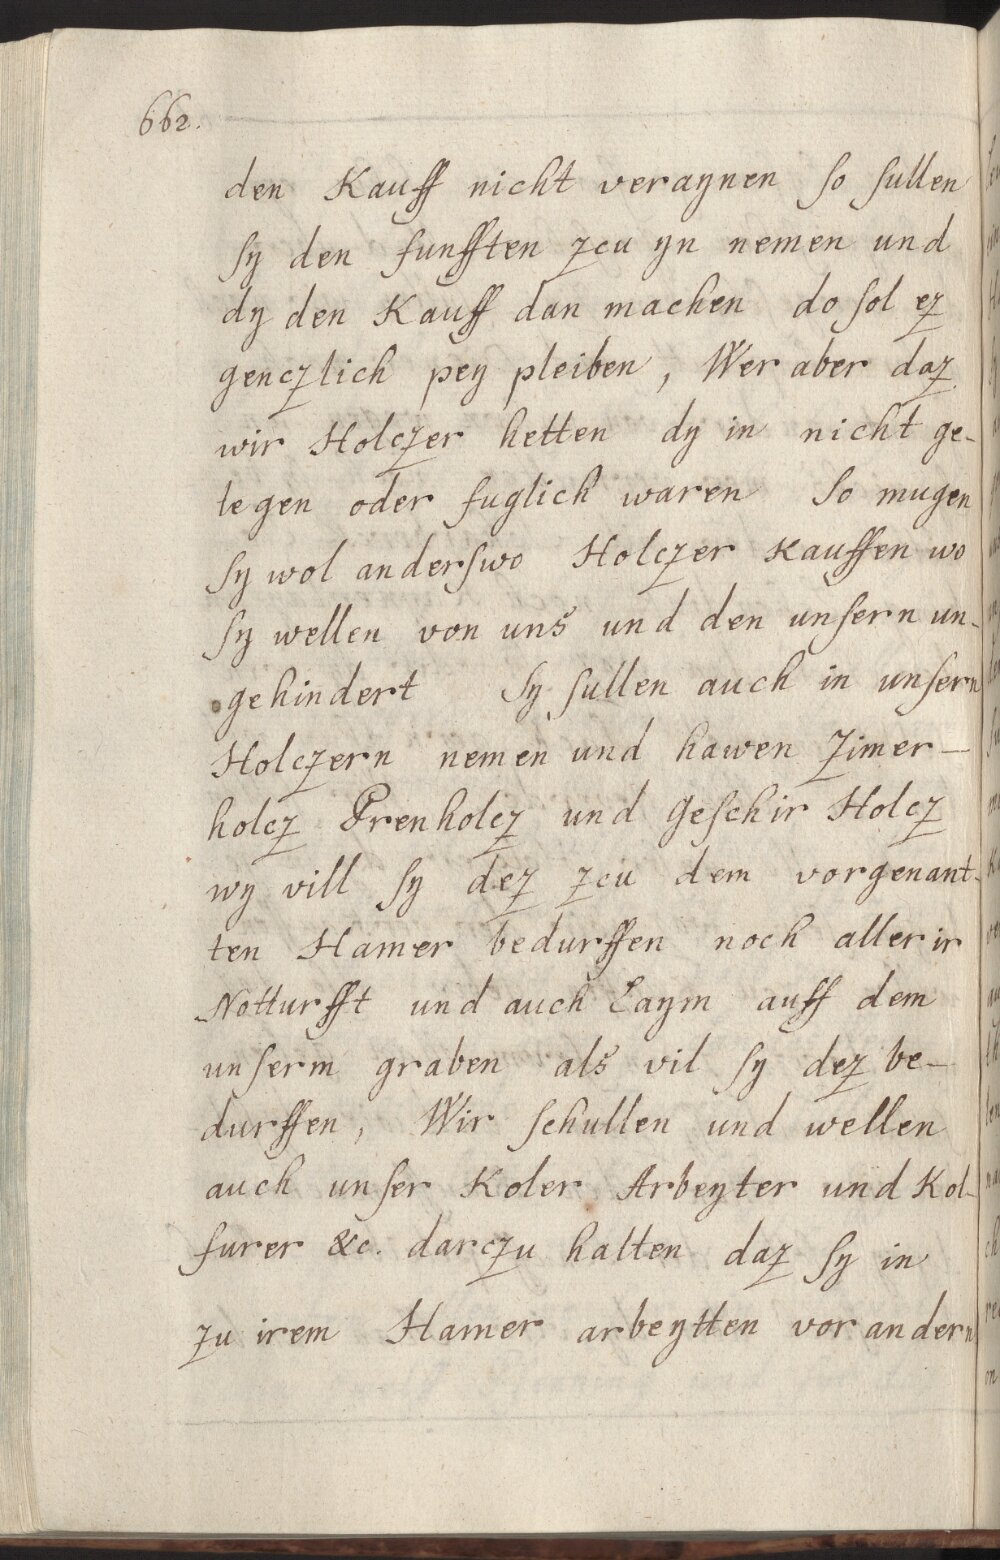 662.
den Kauff nicht veraynen so sullen
sy den funfften zcu yn nemen und
dy den Kauff dan machen do sol ez
genczlich pey pleiben, Wer aber daz
wir Holczer hetten dy in nicht ge-
legen oder fuglich waren So mugen
sy wol anderswo Holczer kauffen wo
sy wellen von uns und den unsern un-
gehindert Sy sullen auch in unsern
Holczern nemen und hawen Zimer-
holcz Prenholcz und Geschir Holcz
wy vill sy dez zcu dem vorgenant-
ten Hamer bedurffen noch aller ir
Notturfft und auch Laym auff dem
unserm graben als vil sy dez be-
durffen, Wir schullen und wellen
auch unser Koler Arbeyter und Kol-
furer &c. darczu halten daz sy in
zu irem Hamer arbeytten vor andern